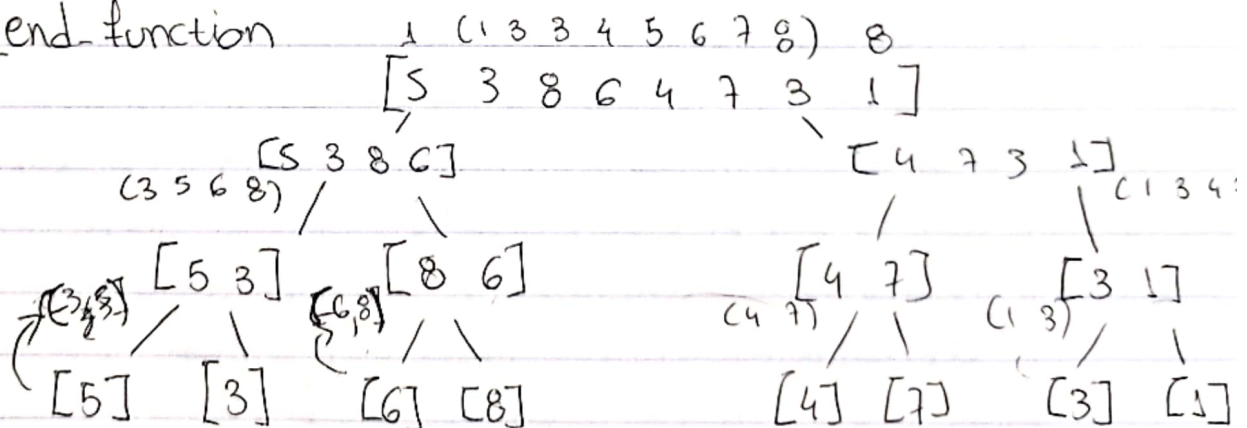 end_function 1 (1 3 3 4 5 6 7 8) 8
[5 3 8 6 4 7 3 1]
[5 3 8 6] [4 7 3 1]
(3 5 6 8) (1 3 4
[5 3] [8 6] [4 7] [3 1]
[6,8] (4 7) (1 3)
[5] [3] [6] [8] [4] [7] [3] [1]